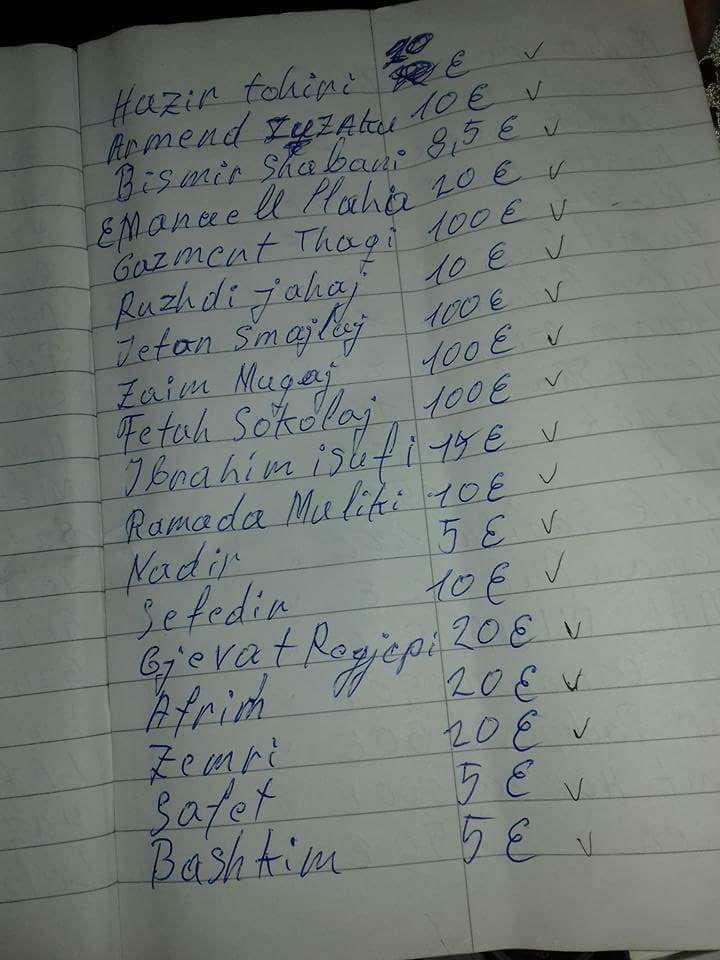 Hazir tahiri 20 € ✓
Armend ZyZAku 10 € ✓
Bismir Shabani 8,5 € ✓
EManuell Plaha 20 € ✓
Gazment Thaqi 100 € ✓
Ruzhdi jahaj 10 € ✓
Jeton Smajlaj 100 € ✓
Zaim Mugaj 100 € ✓
Fetah Sokolaj 100 € ✓
Ibrahim isufi 15 € ✓
Ramada Muliki 10 € ✓
Nadir 5 € ✓
Sefedin 10 € ✓
Gjevat Regjepi 20 € ✓
Afrim 20 € ✓
Zemri 20 € ✓
Safet 5 € ✓
Bashkim 5 € ✓